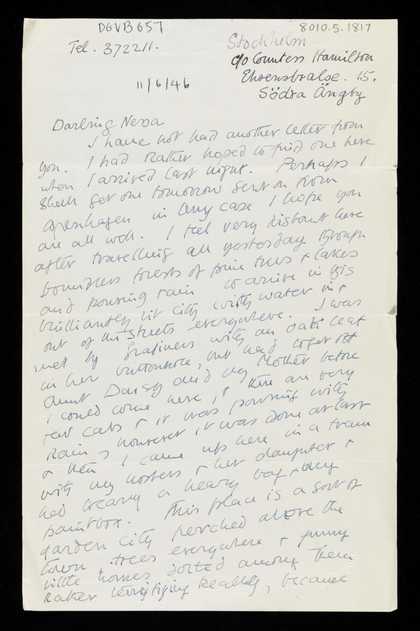 DGVB657
8010.5.1817
Tel. 372211.
Stockholm
c/o Countess Hamilton
15.
Södra Ängby
11/6/46
Darling Nessa
I have not had another letter from
you. I had rather hoped to find one here
when I arrived last night. Perhaps I
shall get one tomorrow sent on from
Copenhagen in any case I hope you
are all well. I feel very distant here
after travelling all yesterday through
boundless forests of pine trees & lakes
and pouring rain to arrive in this
brilliantly lit city with water in &
out of the streets everywhere. I was
met by with an oak leaf
in her buttonhole, but had to get
Aunt Daisy and my Mother before
I could come here & there are very
few cabs & it was pouring with
rain, however it was done at last
& then I came up here in a tram
with my hostess & her daughter &
had wearing a heavy bag & my
paintbox. This place is a sort of
garden city perched above the
town trees everywhere & funny
little homes dotted among them
rather terrifying really, because